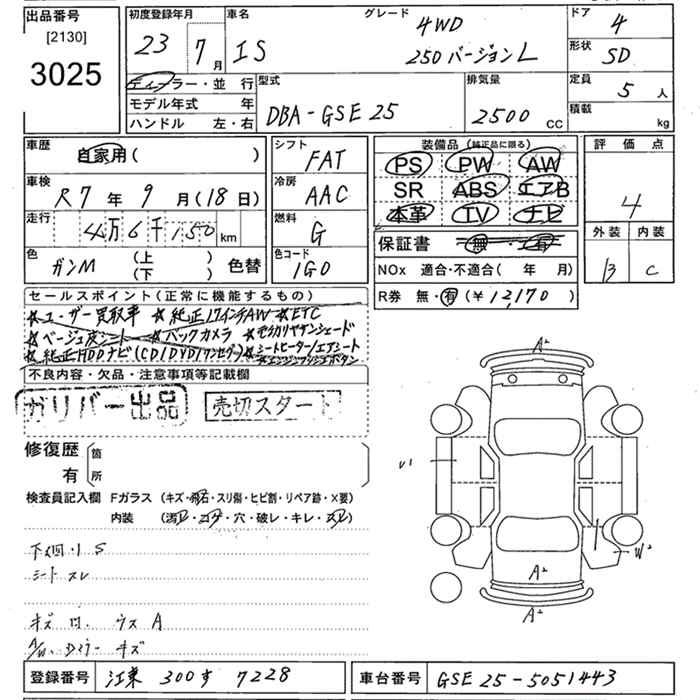 出品番号
[2130]
3025
初度登録年月
23 7月
車名
IS
グレード
4WD
250 バージョンL
ドア
4
形状
SD
ディーラー・並 行
モデル年式 年
ハンドル 左・右
型式
DBA-GSE25
排気量
2500 CC
定員
5 人
積載
kg
車歴
自家用( )
車検
R7 年 9 月(18 日)
走行
4万6千150 km
色
ガンM (上) (下) 色替
シフト
FAT
冷房
AAC
燃料
G
色コード
1G0
装備品(純正品に限る)
PS PW AW
SR ABS エアB
本革 TV ナビ
保証書 無・有
NOx 適合・不適合( 年 月)
R券 無・有(¥12,170)
評価点
4
外装 内装
B C
セールスポイント(正常に機能するもの)
☆ユーザー買取車 ☆純正17インチAW ☆ETC
☆ベージュ皮シート ☆バックカメラ
☆純正HDDナビ(CD/DVD/ワンセグ) ☆シートヒーター/エアシート
☆エンジンプッシュボタン
不良内容・欠品・注意事項等記載欄
ガリバー出品
売切スタート
修復歴
有
箇所
検査員記入欄 Fガラス(キズ・飛石・スリ傷・ヒビ割・リペア跡・X要)
内装 (汚レ・コゲ・穴・破レ・キレ・スレ)
下回り S
シート スレ
キズ 凹 ウス A
A/W. Dミラー キズ
A²
U¹
W²
A²
A²
登録番号
江東 300す 7228
車台番号
GSE25-5051443